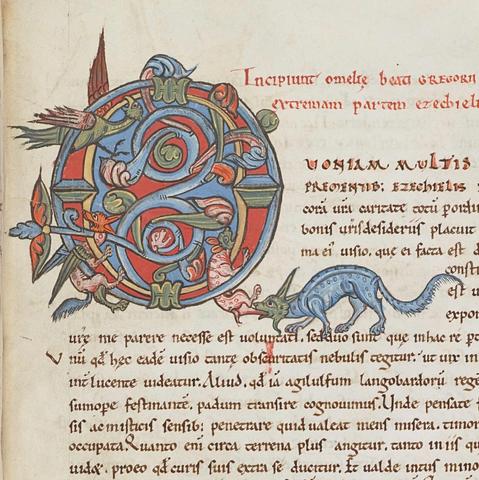 Incipiunt omelie beati GREGORII
extremam partem ezechiel
UONIAM MULTIS
PREMENTIB; EZECHIELIS
corā urā caritate totū p ordin
bonis urīs desideriis placuit
ma ei' uisio. que ei facta est
consti
est u
expon
ure me parere necesse est uoluntati. sed duo sunt que in hac re pt
nū qđ hęc eadē uisio tantę obscuritatis nebulis tegitur. ut uix in
inēlucente uideatur. Aliud. qđ ia agilulfum langobardorū rege
sumope festinante. padum transire cognouimus. Unde pensate f
sis ac misticis sensib; penetrare quid ualeat mens misera. timor
occupata. Quanto eni circa terrena plus angitur. tanto in iis qu
uidet. pro eo qđ curis suis extra se ducitur. Et ualde intus mino